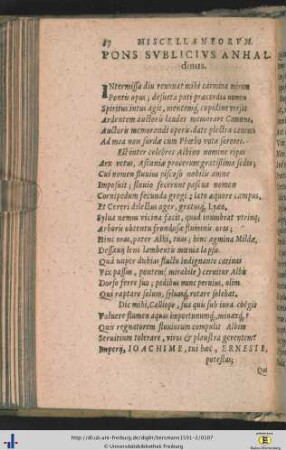 87 MISCELLANEORVM
PONS SVBLICIVS ANHAL-
dinus.
INtermissa diu renouat mihi carmina mirum
Pontis opus; desueta pati præcordia numen
Spiritus intus agit, mentemq; cupidine versat
Ardentem auctoris laudes memorare Camœnæ,
Auctoris memorandi operis. date plectra
Ad mea non surdæ cum Phœbo vota sorores.
Est inter celebres Albino nomine ripas
Arx vetus, Ascaniæ procerum gratissima sedes;
Cui nomen fluuius piscoso nobilis amne
Imposuit; fluuio fecerunt pascua nomen
Cornipedum fecunda gregi; late æquore campus,
Et Cereri dilectus ager, gratusq; Iyæo,
Sylua nemus vicina facit, quod inumbrat vtrinq;
Arboris obtentu frondosæ fluminis oris;
Hinc oras, pater Albi, tuas; hinc agmina Mildæ,
Dessauæ leni lambentis mœnia lapsu.
Quà nuper dubias fluctu indignante carinas
Vix passus, pontem( mirabile) cernitur Albis
Dorso ferre suo; pedibus nunc peruius, olim
Qui raptare salum, syluasq; rotare solebat.
Dic mihi, Calliope, sua qui sub iura coëgit
Voluere flumen aquas importunumq; minaxq;?
Quis regnatorem fluuiorum compulit Albim
Seruitium tolerare, viros & plaustra gerentem?
Imperij, IOACHIME, tui hæc, ERNESTE,
potestas;
Qui
http://dl.ub.uni-freiburg.de/diglit/bersmann1591-2/0207
© Universitätsbibliothek Freiburg